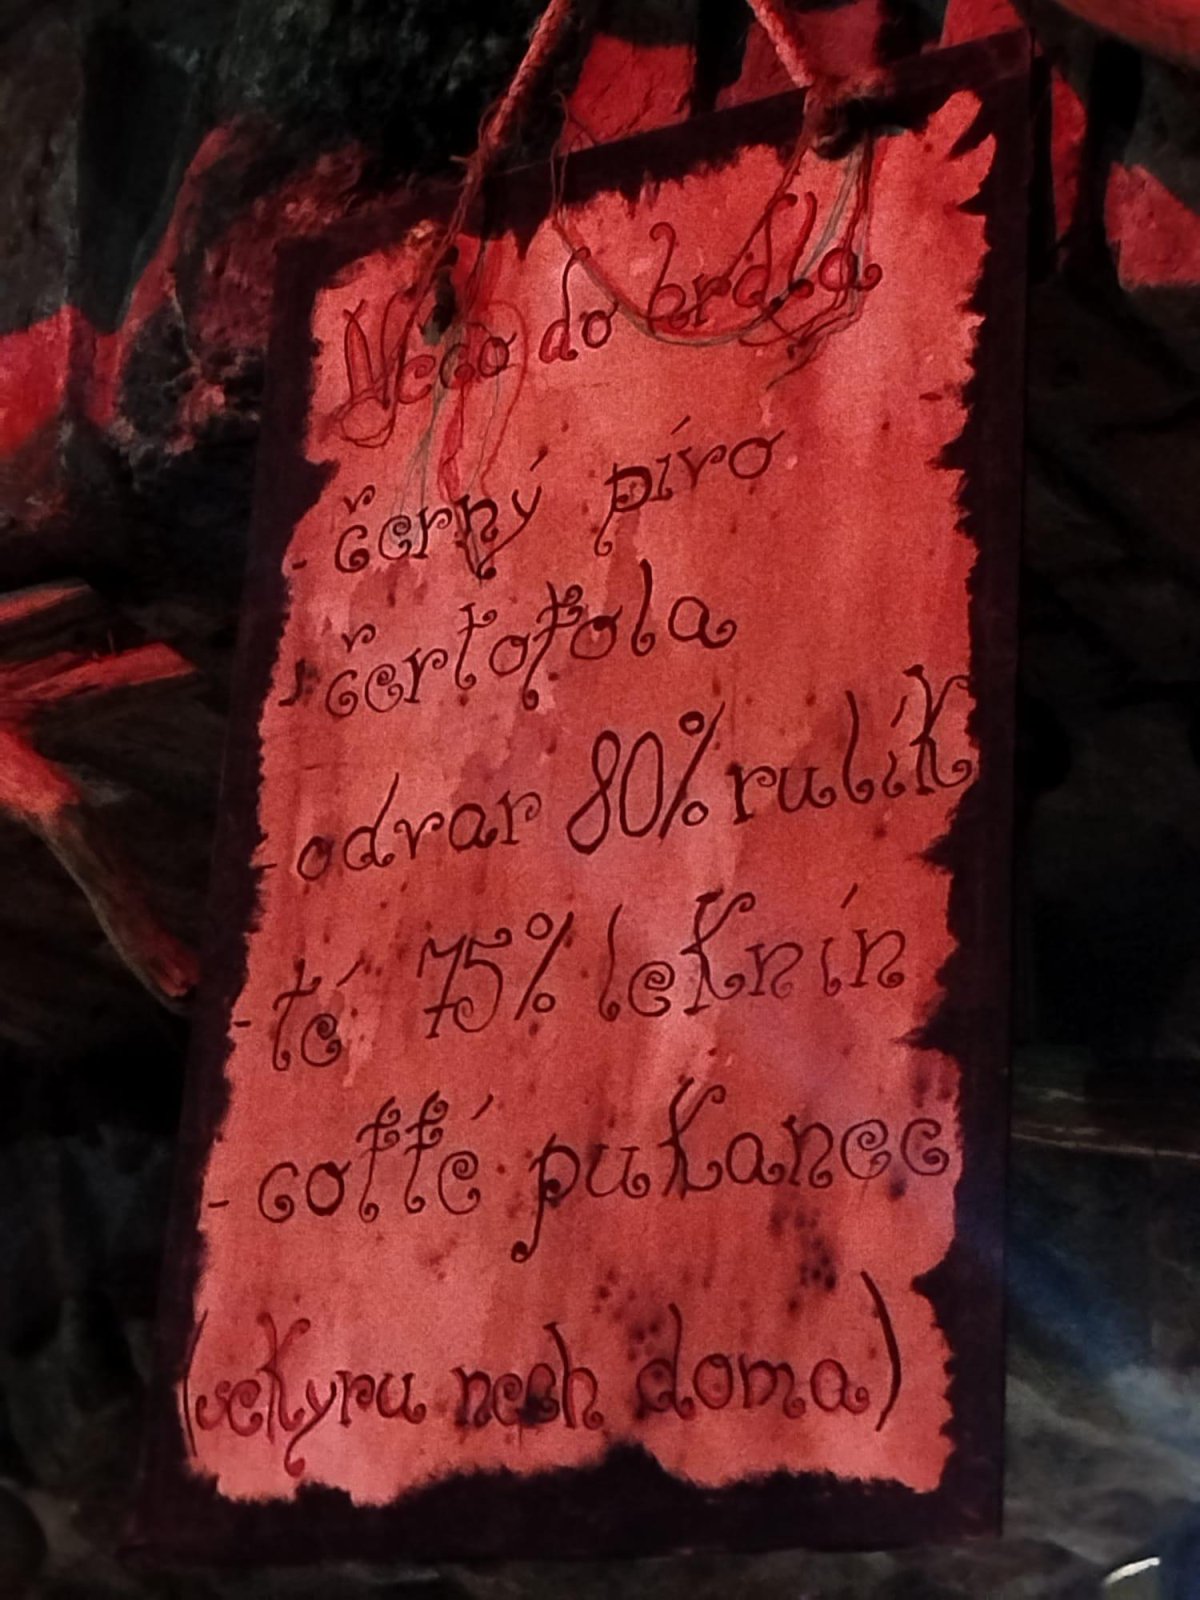 Něco do brdla
- černý pívo
- čertofola
- odvar 80% rulík
- té 75% leknín
- coffé pukanec
(sekyru nech doma)